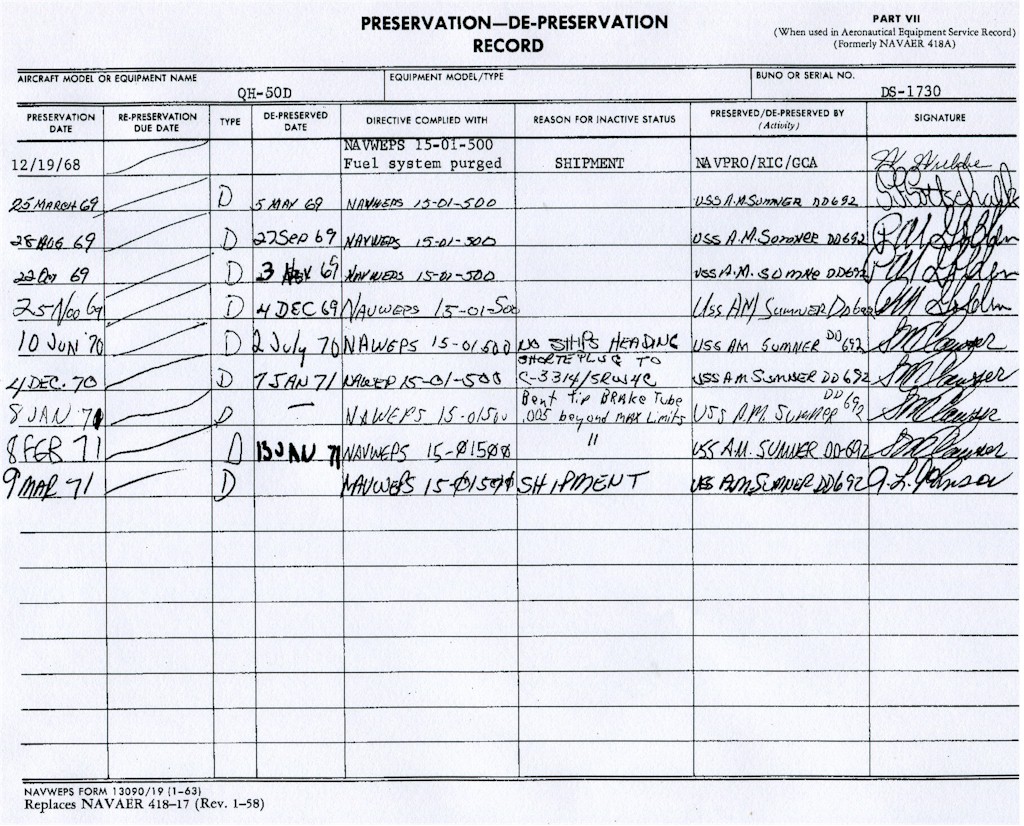 PRESERVATION—DE-PRESERVATION
RECORD
PART VII
(When used in Aeronautical Equipment Service Record)
(Formerly NAVAER 418A)
AIRCRAFT MODEL OR EQUIPMENT NAME EQUIPMENT MODEL/TYPE BUNO OR SERIAL NO.
QH-50D DS-1730
PRESERVATION DATE RE-PRESERVATION DUE DATE TYPE DE-PRESERVED DATE DIRECTIVE COMPLIED WITH REASON FOR INACTIVE STATUS PRESERVED/DE-PRESERVED BY (Activity) SIGNATURE
NAVWEPS 15-01-500
12/19/68 Fuel system purged SHIPMENT NAVPRO/RIC/GCA
25 MARCH 69 D 5 MAY 69 NAVWEPS 15-01-500 USS A.M SUMNER DD692
28 AUG 69 D 27 Sep 69 NAVWEPS 15-01-500 USS A.M. SUMNER DD692
22 Oct 69 D 3 NOV 69 NAVWEPS 15-01-500 USS A.M. SUMNER DD692
25 Nov 69 D 4 DEC 69 NAVWEPS 15-01-500 USS AM SUMNER DD692
10 JUN 70 D 2 July 70 NAWEPS 15-01500 NO SHIPS HEADING USS AM SUMNER DD692
SHORTE PLUG TO
4 DEC. 70 D 7 JAN 71 NAWEP 15-01-500 C-3314/SRW4C USS AM SUMNER DD692
Bent tip BRAKE Tube
8 JAN 71 D — NAWEPS 15-01500 .005 beyond MAX Limits USS A.M. SUMNER DD692
8 FEB 71 D 13 JAN 71 NAVWEPS 15-01500 " USS A.M. SUMNER DD-692
9 MAR 71 D NAVWEPS 15-01500 SHIPMENT USS AM SUMNER DD692
NAVWEPS FORM 13090/19 (1–63)
Replaces NAVAER 418–17 (Rev. 1–58)